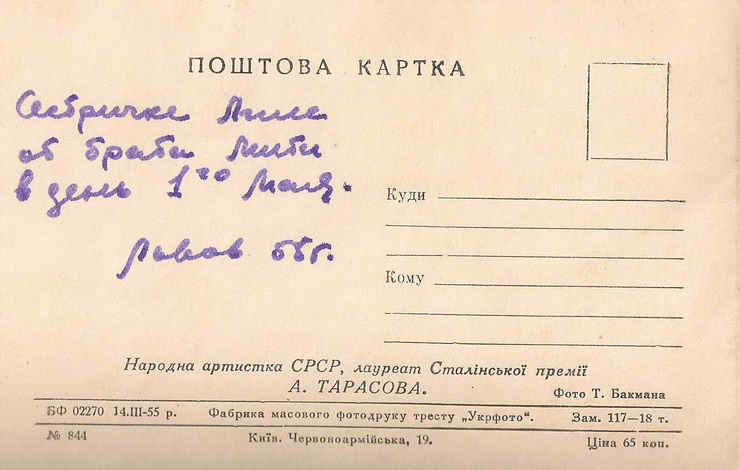 ПОШТОВА КАРТКА
Сестричке Лиле
от брата Мити
в день 1го Мая.
Львов
Куди
Кому
Народна артистка СРСР, лауреат Сталінської премії
А. ТАРАСОВА.
Фото Т. Бакмана
БФ 02270 14.III-55 р. Фабрика масового фотодруку тресту „Укрфото“. Зам. 117—18 т.
№ 844 Київ. Червоноармійська, 19. Ціна 65 коп.